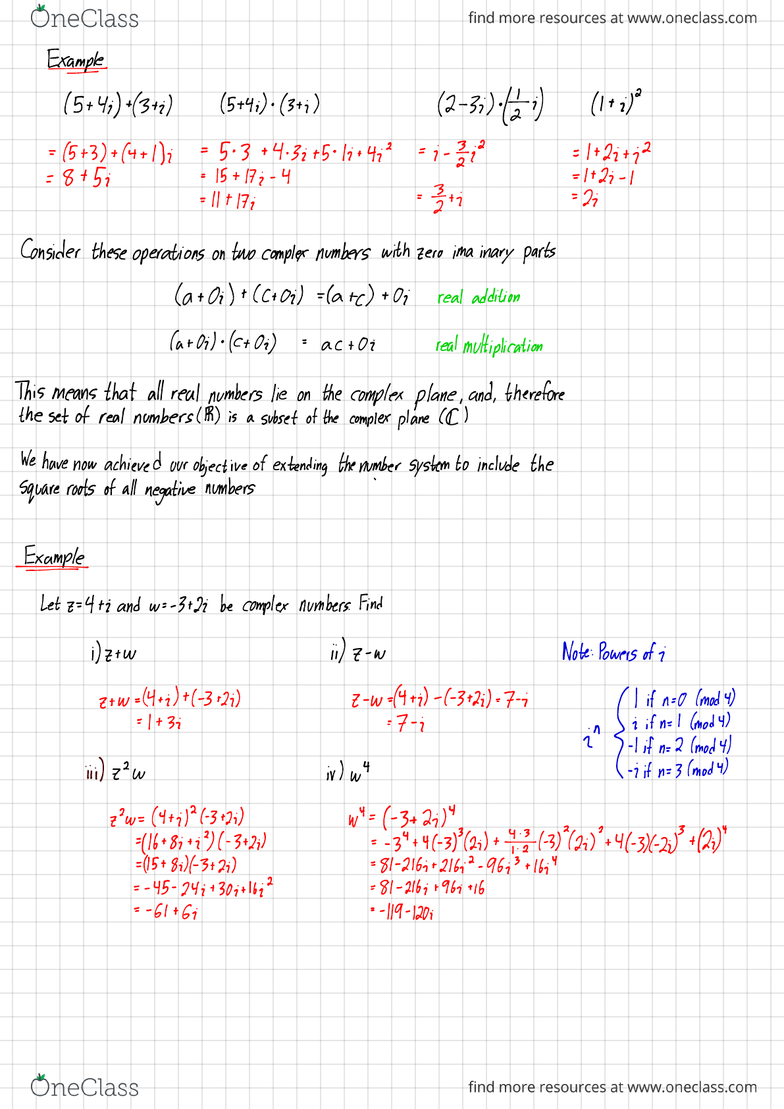 OneClass find more resources at www.oneclass.com
Example
(5+4i)+(3+i) (5+4i)·(3+i) (2-3i)·(1/2 i) (1+i)²
= (5+3)+(4+1)i = 5·3 +4·3i+5·1i+4i² = i - 3/2 i² = 1+2i+i²
= 8+5i = 15+17i-4 = 3/2 +i = 1+2i-1
= 11+17i = 2i
Consider these operations on two complex numbers with zero ima inary parts
(a+0i)+(c+0i) =(a+c)+0i real addition
(a+0i)·(c+0i) = ac+0i real multiplication
This means that all real numbers lie on the complex plane, and, therefore
the set of real numbers (ℝ) is a subset of the complex plane (ℂ)
We have now achieved our objective of extending the number system to include the
square roots of all negative numbers
Example
Let z=4+i and w=-3+2i be complex numbers Find
i) z+w ii) z-w Note: Powers of i
z+w=(4+i)+(-3+2i) z-w=(4+i)-(-3+2i)=7-i
= 1+3i = 7-i
iⁿ { 1 if n=0 (mod 4)
i if n=1 (mod 4)
-1 if n=2 (mod 4)
-i if n=3 (mod 4)
iii) z²w iv) w⁴
z²w= (4+i)²(-3+2i)
=(16+8i+i²)(-3+2i)
=(15+8i)(-3+2i)
= -45-24i+30i+16i²
= -61+6i
w⁴ = (-3+2i)⁴
= -3⁴+4(-3)³(2i)+ 4·3/1·2 (-3)²(2i)²+4(-3)(-2i)³+(2i)⁴
= 81-216i+216i²-96i³+16i⁴
= 81-216i+96i+16
= -119-120i
OneClass find more resources at www.oneclass.com